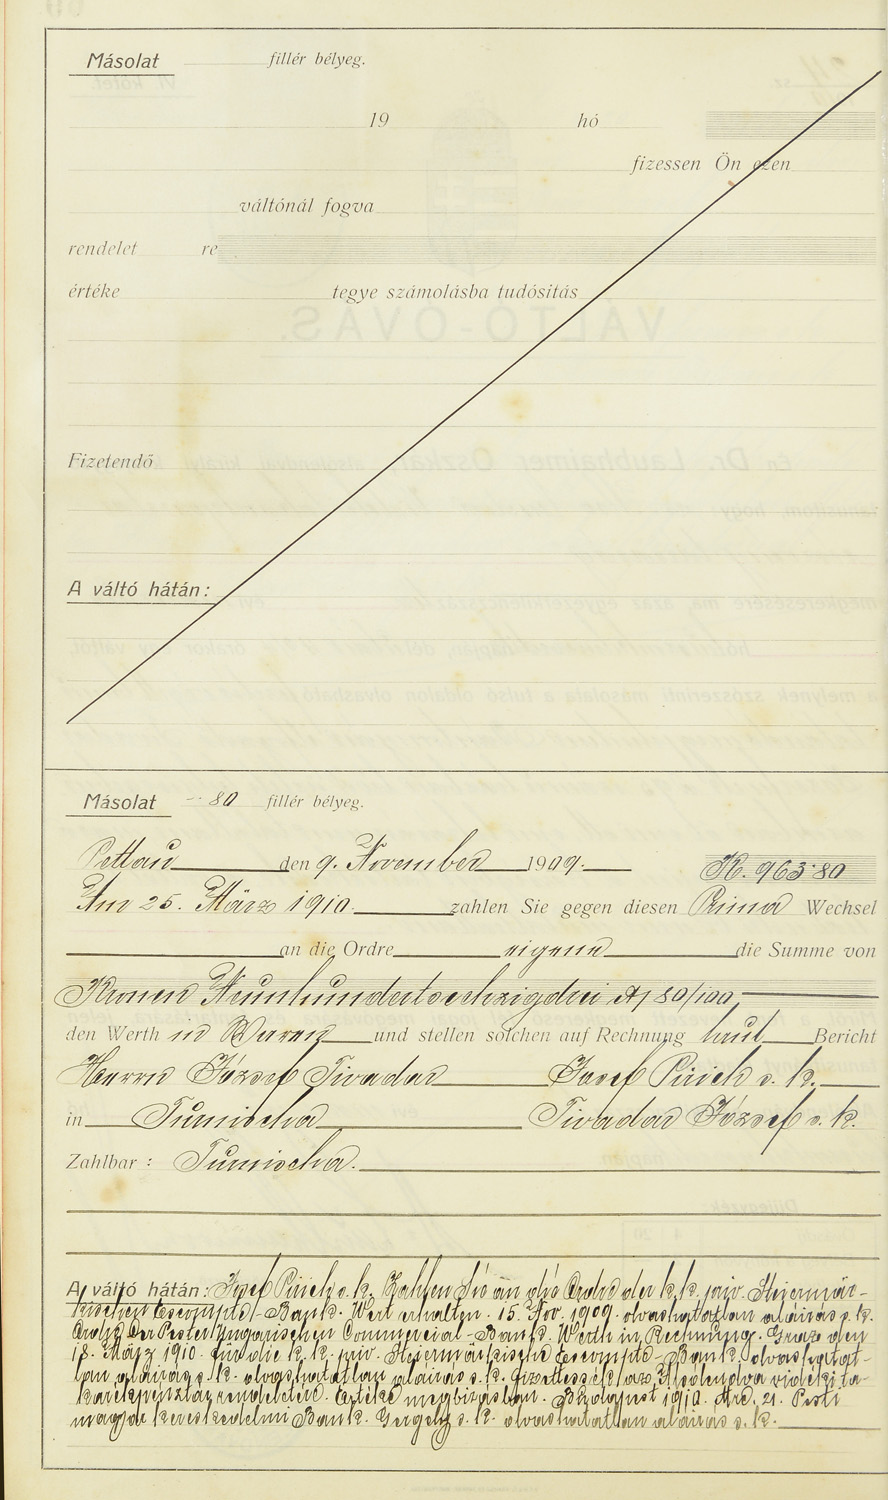 Másolat fillér bélyeg.
19 hó
fizessen Ön ezen
váltónál fogva
rendelet re
értéke tegye számolásba tudósítás
Fizetendő
A váltó hátán:
Másolat 80 fillér bélyeg.
Pettau den 9. November 1909. K. 963·80
Am 25. März 1910. zahlen Sie gegen diesen Prima Wechsel
an die Ordre eigene die Summe von
Kronen Neunhundertsechzigdrei 80/100
den Werth in Waren und stellen solchen auf Rechnung laut Bericht
Herrn József Tivadar Josef Pirich s. k.
in Turnischa Tivadar József s. k.
Zahlbar: Turnischa.
A váltó hátán: Josef Pirich s. k. Zahlen Sie an die Ordre der k. k. priv. Steiermär-
kischen Escompte-Bank. Wert erhalten. 15. Nov. 1909. olvashatatlan aláírás s. k.
Ordre der Pester Ungarischen Commercial-Bank. Werth in Rechnung. Graz den
18. März 1910. Für die k. k. priv. Steiermärkische Escompte-Bank. olvashatat-
lan aláírás s. k. olvashatatlan aláírás s. k. Fizettessék az Alsólendva vidéki ta-
karékpénztár rendeletére. Értéke megbízásban. Budapest 1910. Mrc. 21. Pesti
magyar kereskedelmi Bank. Gergely s. k. olvashatatlan aláírás s. k.